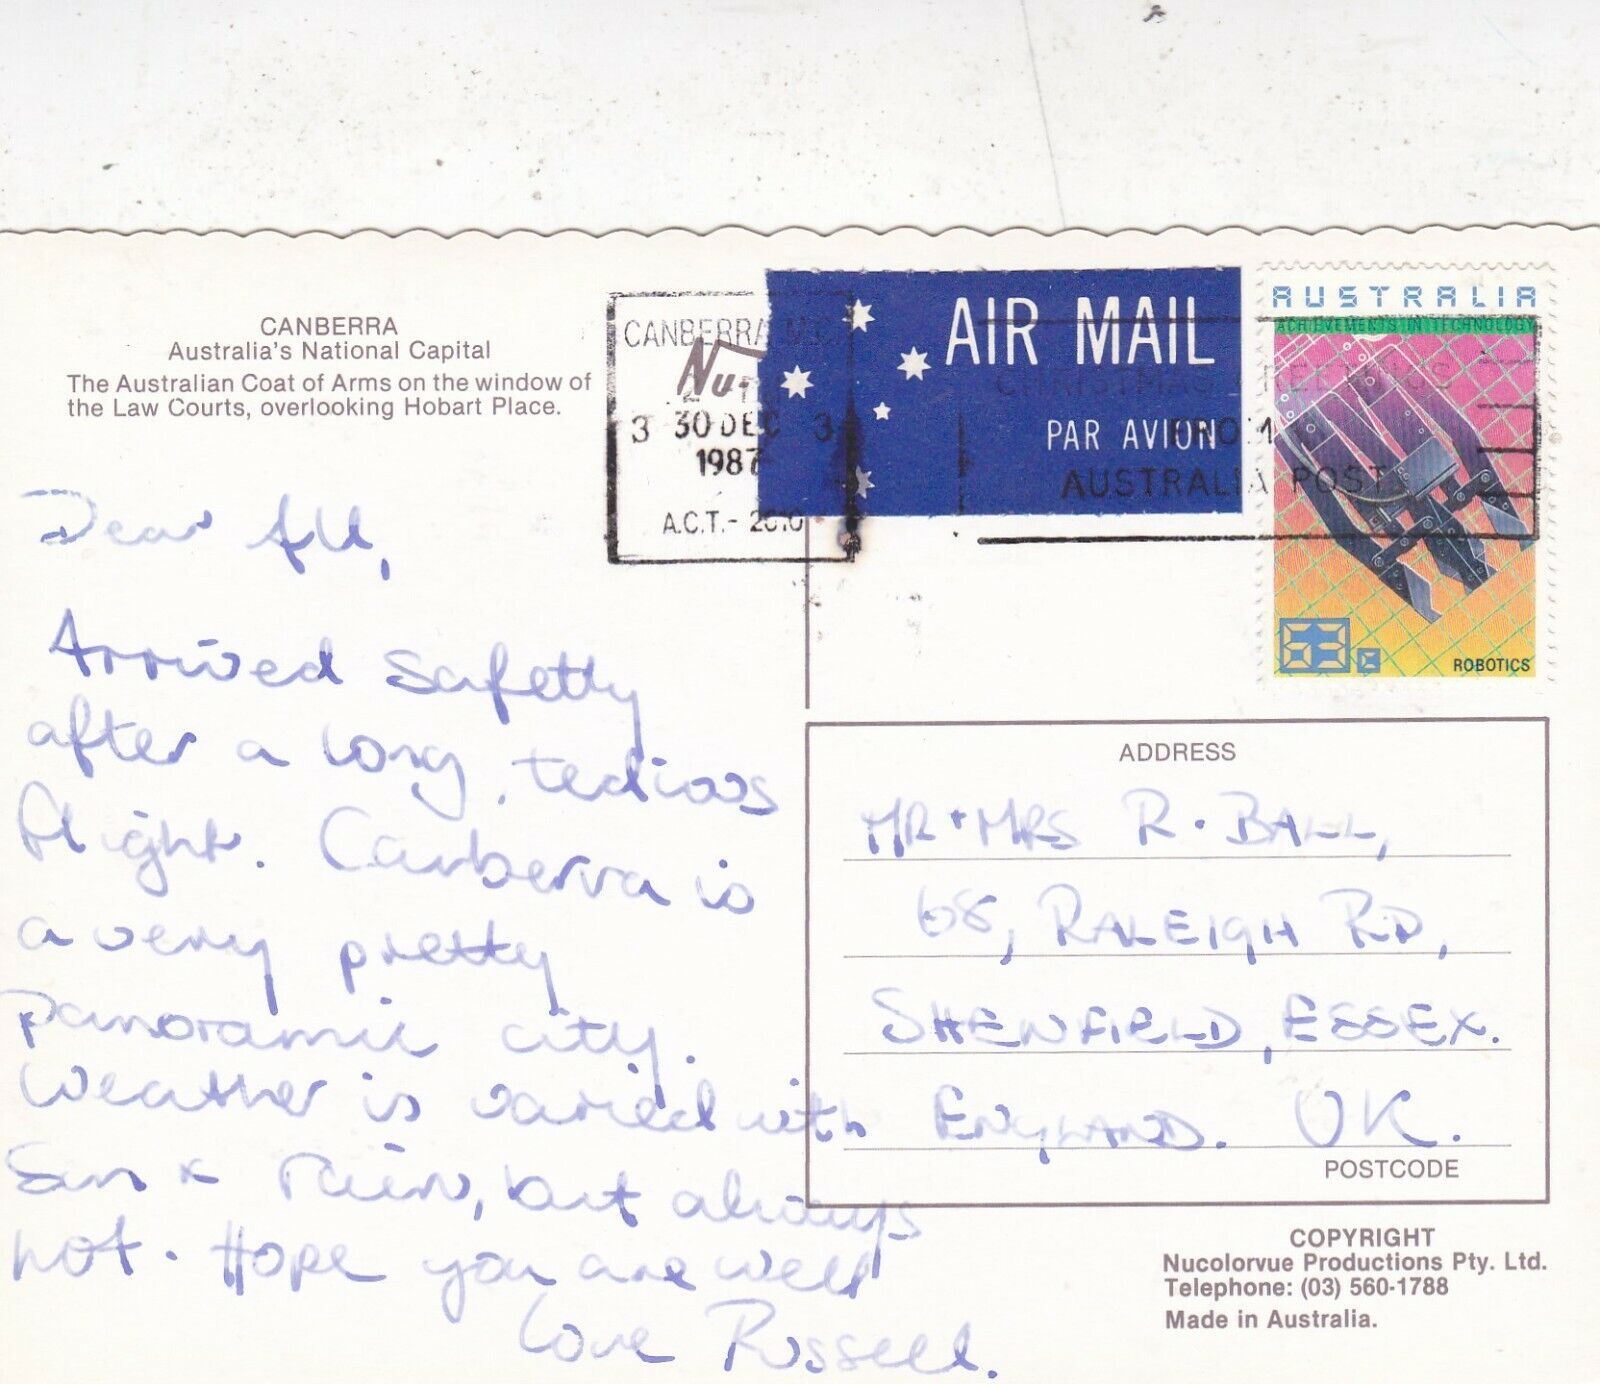 CANBERRA
Australia's National Capital
The Australian Coat of Arms on the window of
the Law Courts, overlooking Hobart Place.
Dear All,
Arrived safetly
after a long, tedious
flight. Canberra is
a very pretty
panoramic city.
Weather is varied with
Sun & rain, but always
hot. Hope you are well
Love Russell.
CANBERRA M.C.
Nu-
3 30 DEC 3
1987
A.C.T. - 2610
AIR MAIL
PAR AVION
CHRISTMAS GREETINGS
FROM
AUSTRALIA POST
AUSTRALIA
ACHIEVEMENTS IN TECHNOLOGY
63c
ROBOTICS
ADDRESS
MR + MRS R. BALL,
68, RALEIGH RD,
SHENFIELD, ESSEX.
ENGLAND. UK.
POSTCODE
COPYRIGHT
Nucolorvue Productions Pty. Ltd.
Telephone: (03) 560-1788
Made in Australia.